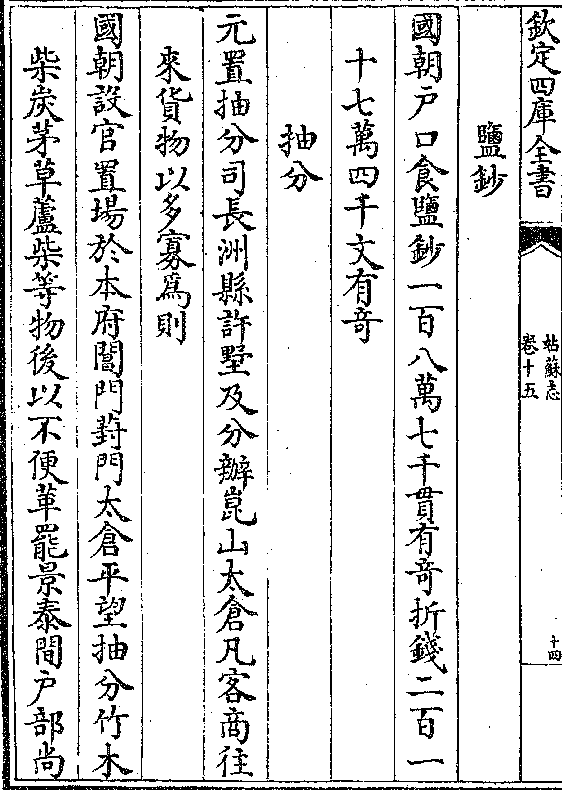 欽定四庫全書
姑蘇志
卷十五
十四
鹽鈔
國朝戸口食鹽鈔一百八萬七千貫有竒折錢二百一
十七萬四千文有竒
抽分
元置抽分司長洲縣許墅及分辦崑山太倉凡客商往
來貨物以多寡爲則
國朝設官置場於本府閶門葑門太倉平望抽分竹木
柴炭茅草蘆柴等物後以不便革罷景泰間戸部尚